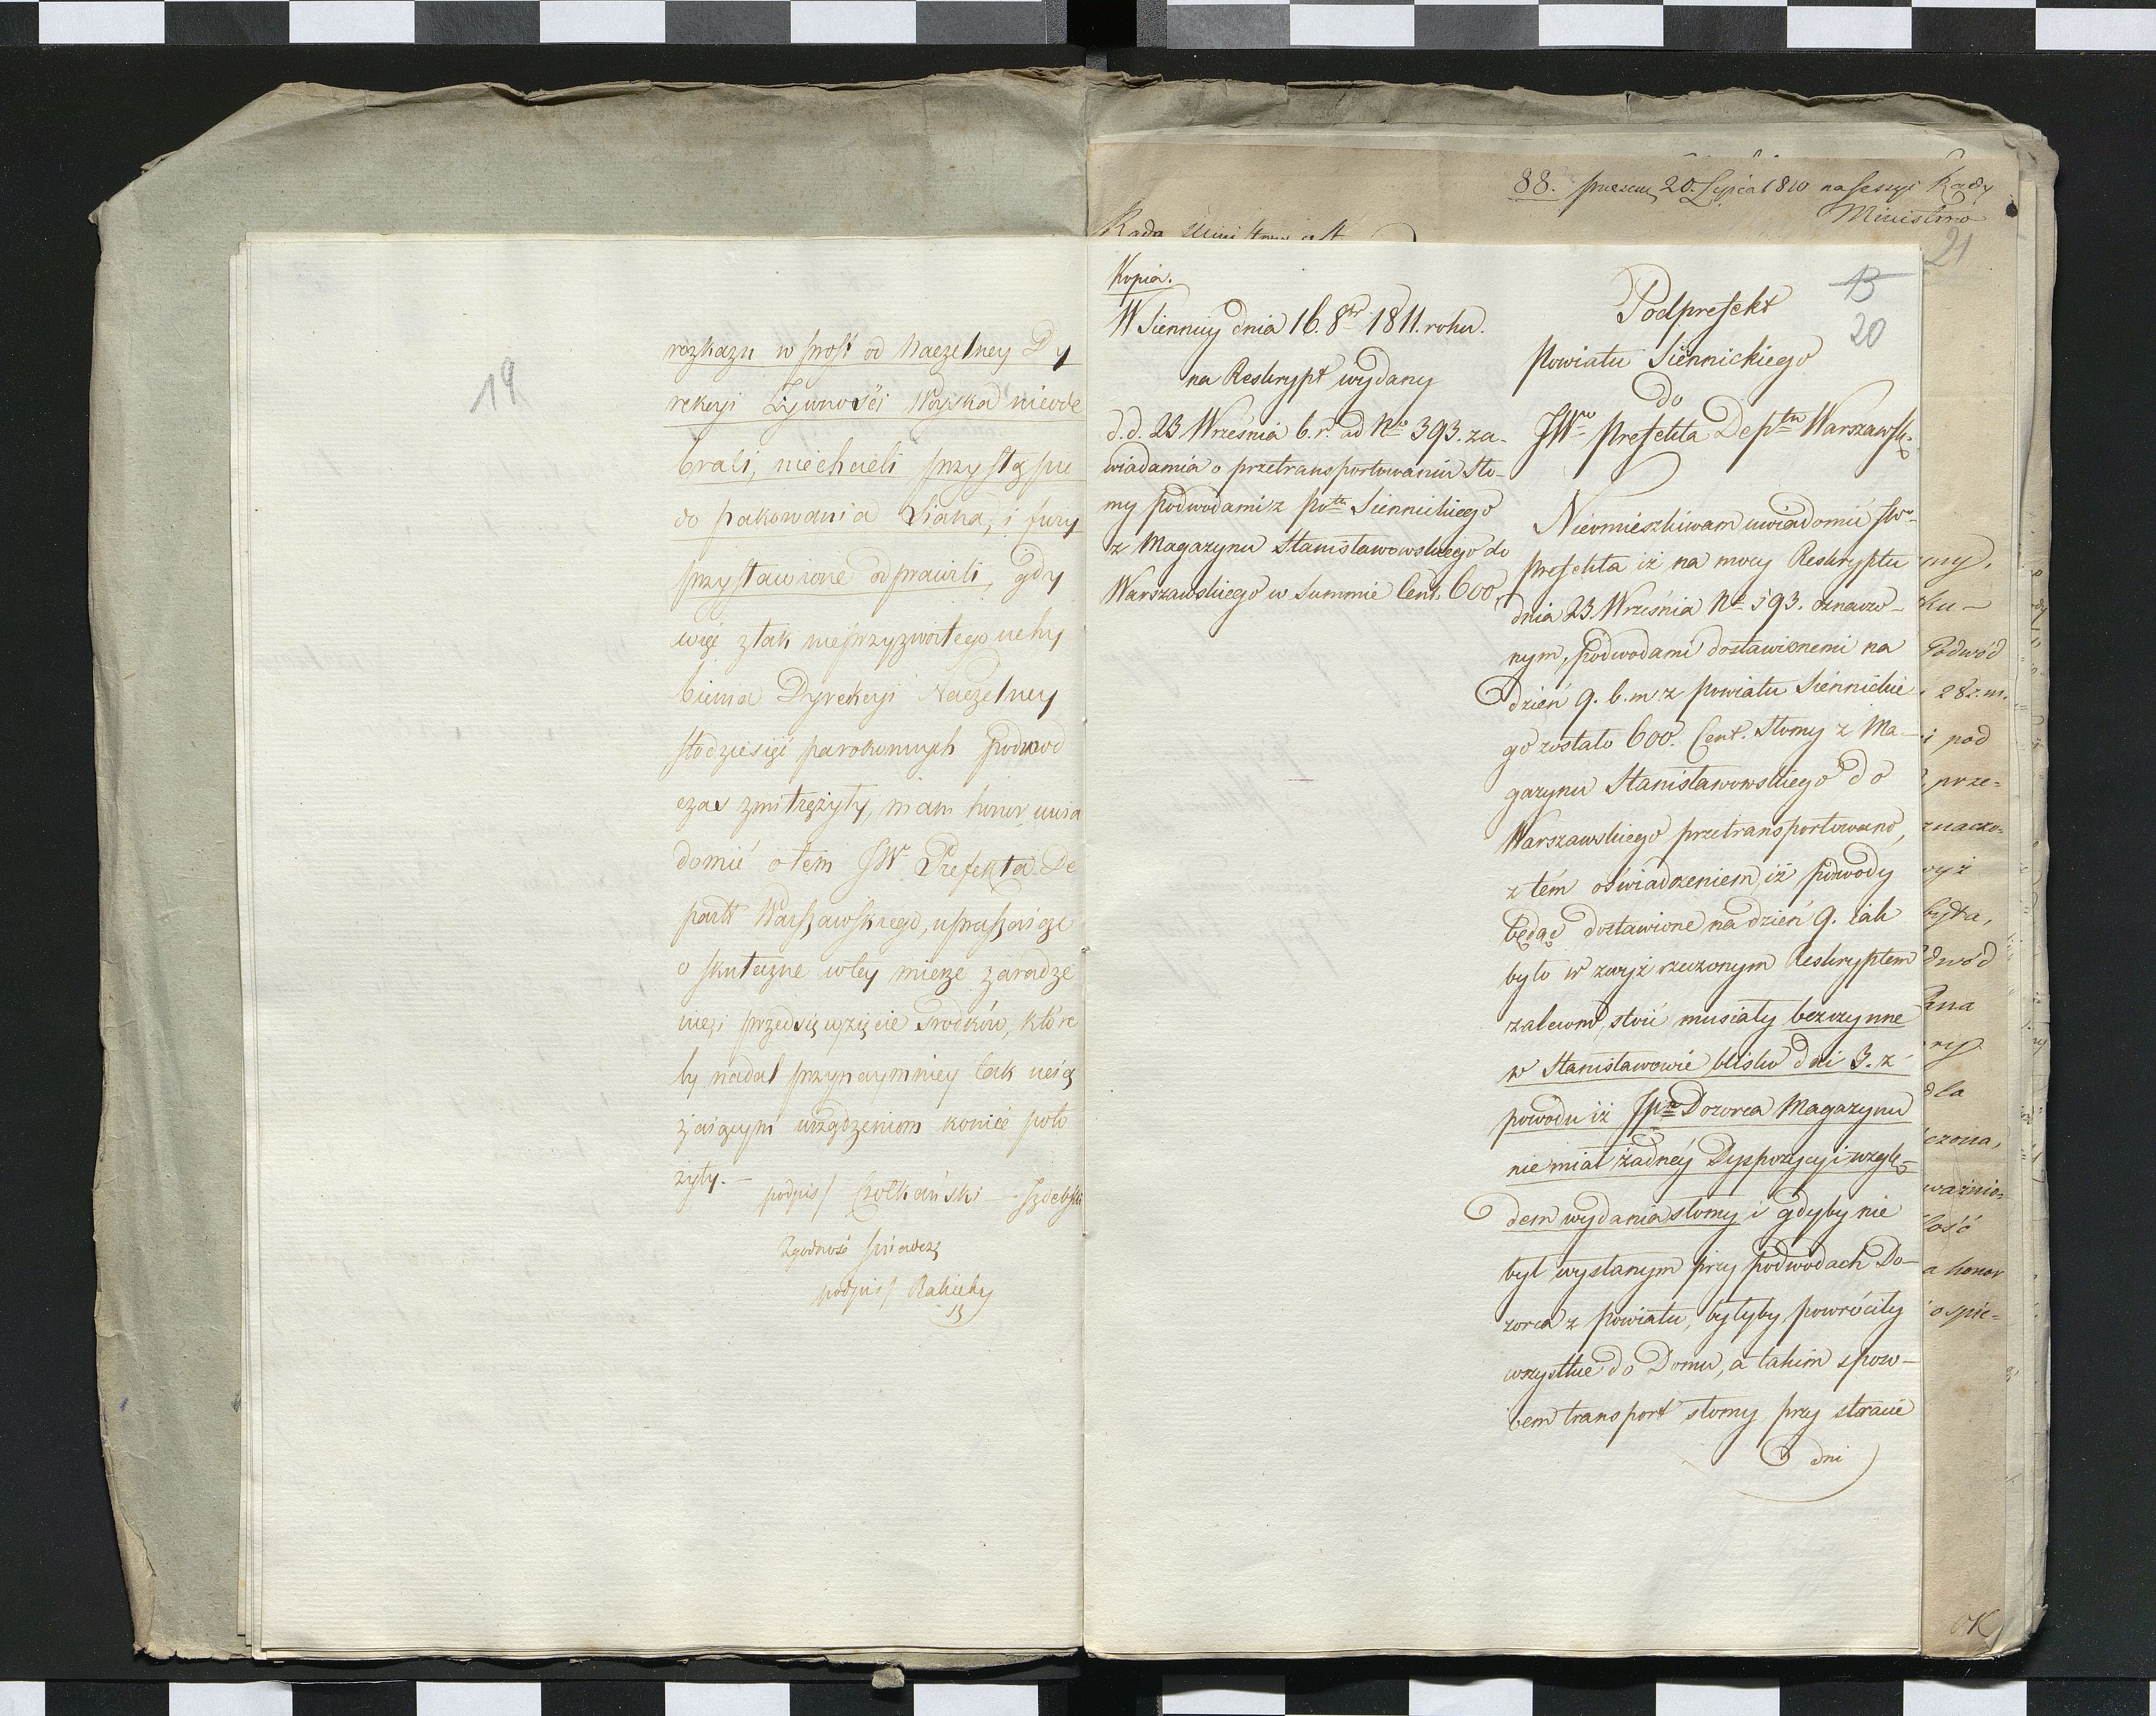 19
rozkazu w prost od Naczelney Dy
rekcyi Żywności Woyska nieode
brali, niechcieli przystąpić
do pakowania Siana, i fury
przystawione odprawili, gdy
więc z tak nieprzyzwoitego uchy
bienia Dyrekcyi Naczelney
stodziesięć parokonnych podwod
czas zmitrężyły, mam honor uwia
domić o tem JW Prefekta De
partt Warszawskiego, upraszaiąc
o skuteczne w tey mierze zaradze
nie, i przedsięwzięcie Srodków, które
by nadal przynaymniey tak ucią
żaiącym urządzeniom koniec poło
żyły. —
podpis/ Czołkański —
Zgodność świadczę
podpis/ Rakiety
88. 20. Lipca 1810 na Sessyi Rady
Ministrów
21
Rada Ministrów
Kopia.
W Siennicy dnia 16. 8br 1811. roku.
na Reskrypt wydany
d. d. 23 Września b. r. ad No 393. za-
wiadamia o przetransportowaniu sło-
my podwodami z Potu Siennickiego
z Magazynu Stanisławowskiego do
Warszawskiego w Summie Cent. 600.
13
20
Podprefekt
Powiatu Siennickiego
do
JWo Prefekta Deptu Warszawsk:
Nieomieszkiwam uwiadomić JWo
Prefekta iż na mocy Reskryptu
dnia 23. Września No 393. oznaczo-
nym, podwodami dostawionemi na
dzień 9. b. m. z powiatu Siennickie
go zostało 600. Cent. Słomy z Ma-
gazynu Stanisławowskiego do
Warszawskiego przetransportowano,
z tém oświadczeniem, iż podwody
będąc dostawione na dzień 9. iak
było w zwyż rzeczonym Reskryptem
zalecono, stoić musiały bezczynne
w Stanisławowie blisko dni 3. z
powodu iż JPn Dozorca Magazynu
nie miał żadnéy Dyspozycyi wzglę-
dem wydania słomy i gdyby nie
był wysłanym przy podwodach Do-
zorca z Powiatu, byłyby powróciły
wszystkie do Domu, a takim spow-
bem transport słomy przy stracie
dni
ku-
Podwód
28. z. m.
i pod
prze-
znaczo-
wyż
była,
dwód
dla
czona,
ważnio-
łość
a honor
o spie-